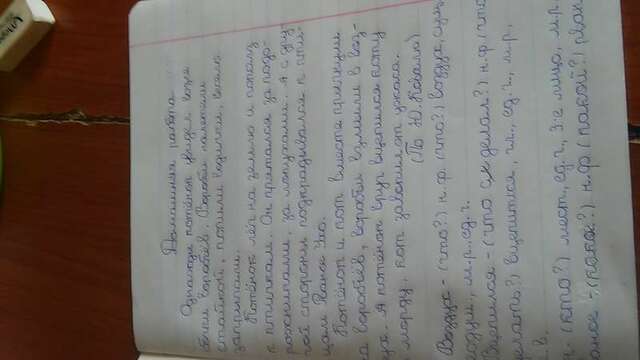 Домашняя работа
Однажды котёнок увидел возле
бочки воробьёв. Воробьи налетели
стайкой, попили водички, весело
запрыгали.
Котёнок лёг на землю и пополз
к птичкам. Он прятался за подо-
рожниками, за лопухами. А с дру-
гой стороны подкрадывался к пти-
цам Рваное Ухо.
Котёнок и кот вместе прыгнули
на воробьёв, воробьи взмыли в воз-
дух. А котёнок вдруг вцепился коту
в морду. кот завопил от ужаса.
(По Ю. Ковалю)
Воздух - (что?) н.ф. (что?) воздух, сущ.
неодуш., м.р., ед.ч.
Вцепился - (что сделал?) н.ф. (что
делать?) вцепиться, гл., ед.ч., м.р.,
в.
(кто?) мест., ед.ч., 3-е лицо, м.р.
(какое?) н.ф. (какой?)